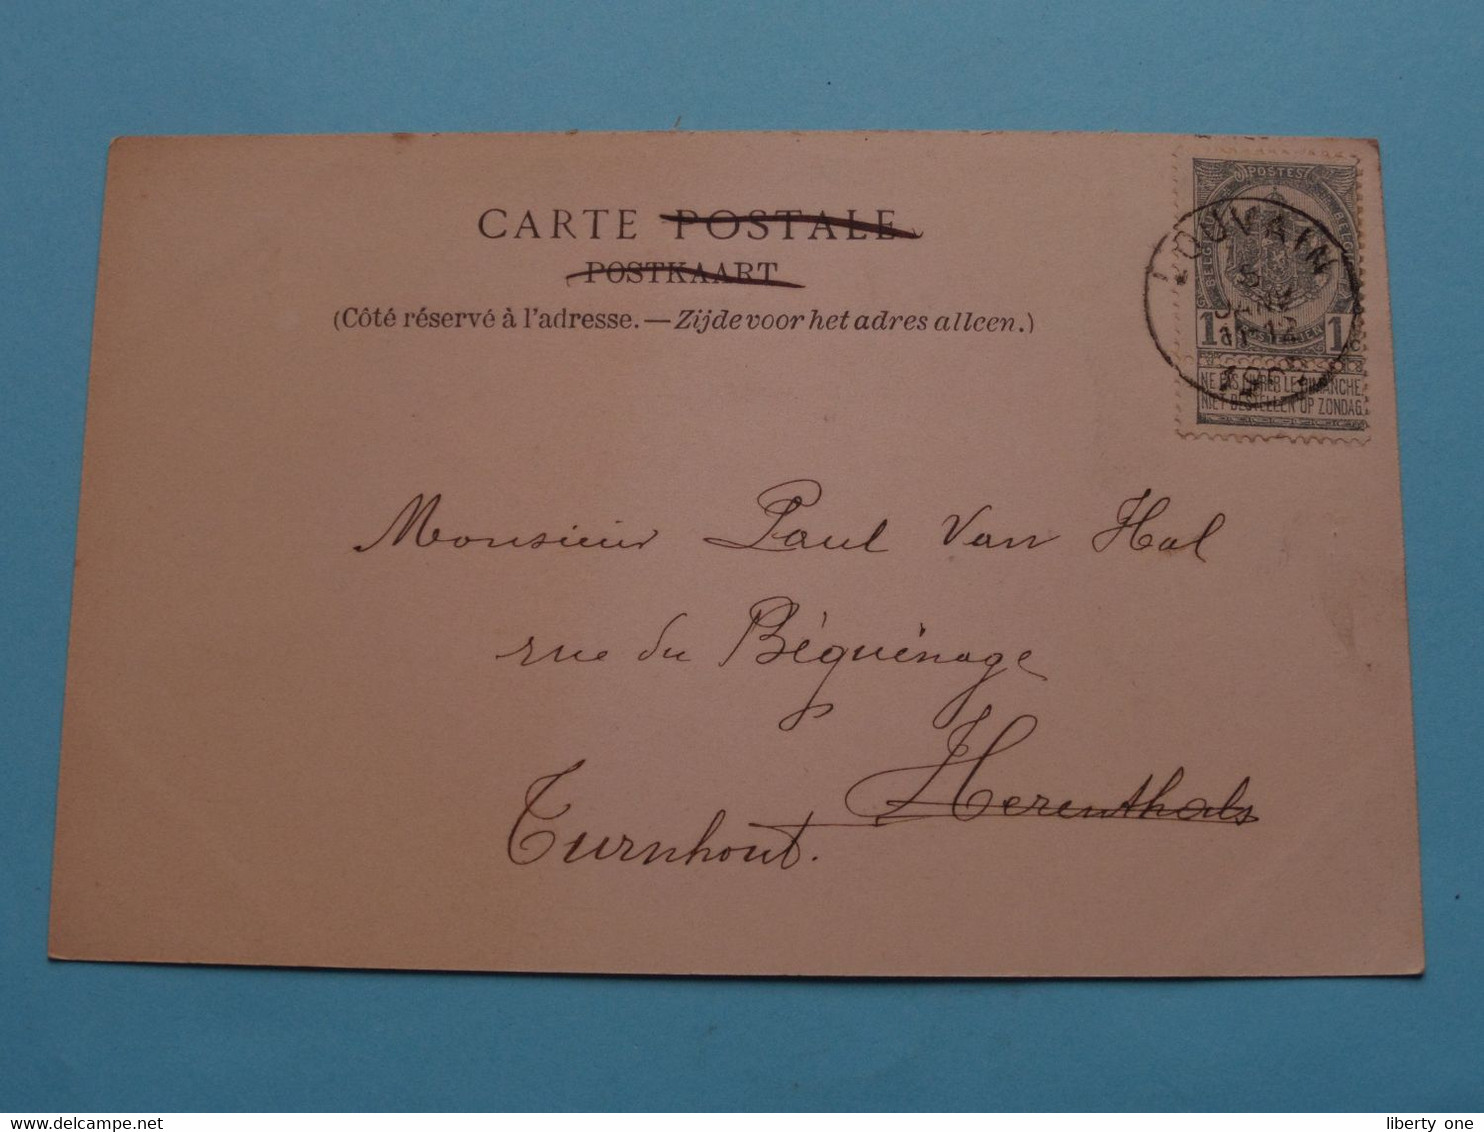 CARTE POSTALE
POSTKAART
(Côté réservé à l'adresse. — Zijde voor het adres alleen.)
POSTES
LOUVAIN
5
JANV
11-12
1 1
NE PAS LIVRER LE DIMANCHE
NIET BESTELLEN OP ZONDAG
Monsieur Paul Van Hal
rue du Béguinage
Herenthals
Turnhout.
liberty one